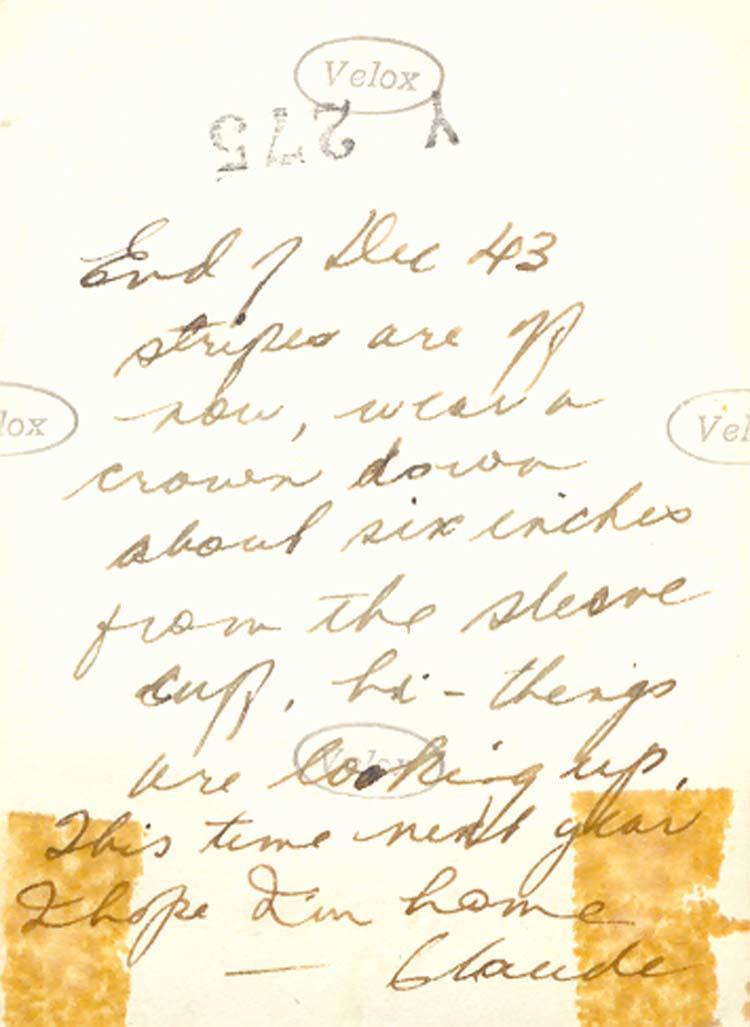 Velox
Y 275
End of Dec 43
stripes are off
now, wear a
crown down
about six inches
lox
Vel
from the sleeve
cuff, hi - things
Velox
are looking up,
This time next year
I hope I'm home
— Claude